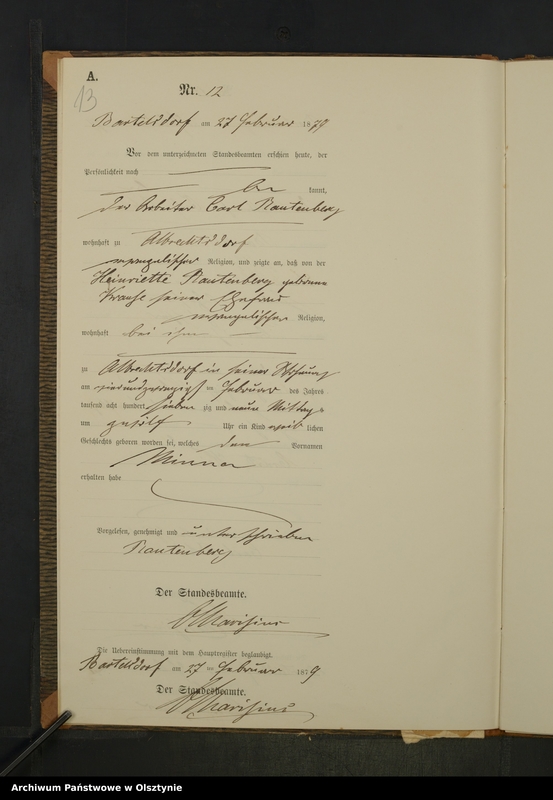 A.
13
Nr. 12
Bartelsdorf am 27 Februar 1879
Vor dem unterzeichneten Standesbeamten erschien heute, der
Persönlichkeit nach
be kannt,
der Arbeiter Carl Rautenberg
wohnhaft zu Albrechtsdorf
evangelischer Religion, und zeigte an, daß von der
Henriette Rautenberg geborene
Krause seiner Ehefrau
evangelischer Religion,
wohnhaft bei ihm
zu Albrechtsdorf in seiner Wohnung
am vierundzwanzigsten Februar des Jahres
tausend acht hundert sieben zig und neun Mittags
um zwölf Uhr ein Kind weib lichen
Geschlechts geboren worden sei, welches den Vornamen
Minna
erhalten habe
Vorgelesen, genehmigt und unterschrieben
Rautenberg
Der Standesbeamte.
Die Uebereinstimmung mit dem Hauptregister beglaubigt.
Bartelsdorf am 27 ten Februar 1879
Der Standesbeamte.
Archiwum Państwowe w Olsztynie